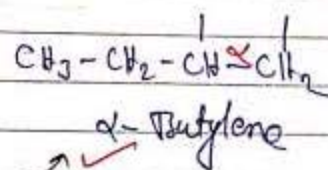 CH3 - CH2 - CH = CH2
α- Butylene